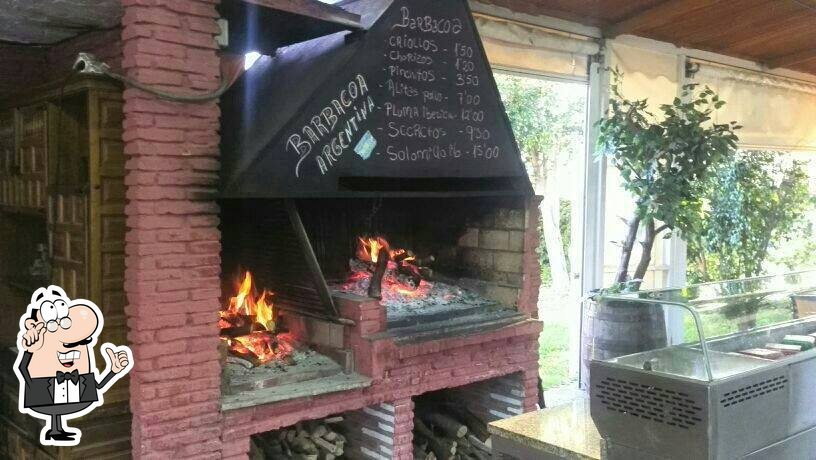 BARBACOA
ARGENTINA
BARBACOA
- CRIOLLOS - 1'50
- Chorizos - 1'20
- Pinchitos - 3'50
- Alitas pollo - 7'00
- PLUMA Iberica - 12'00
- SECRETOS - 9'50
- Solomillo Ib - 15'00